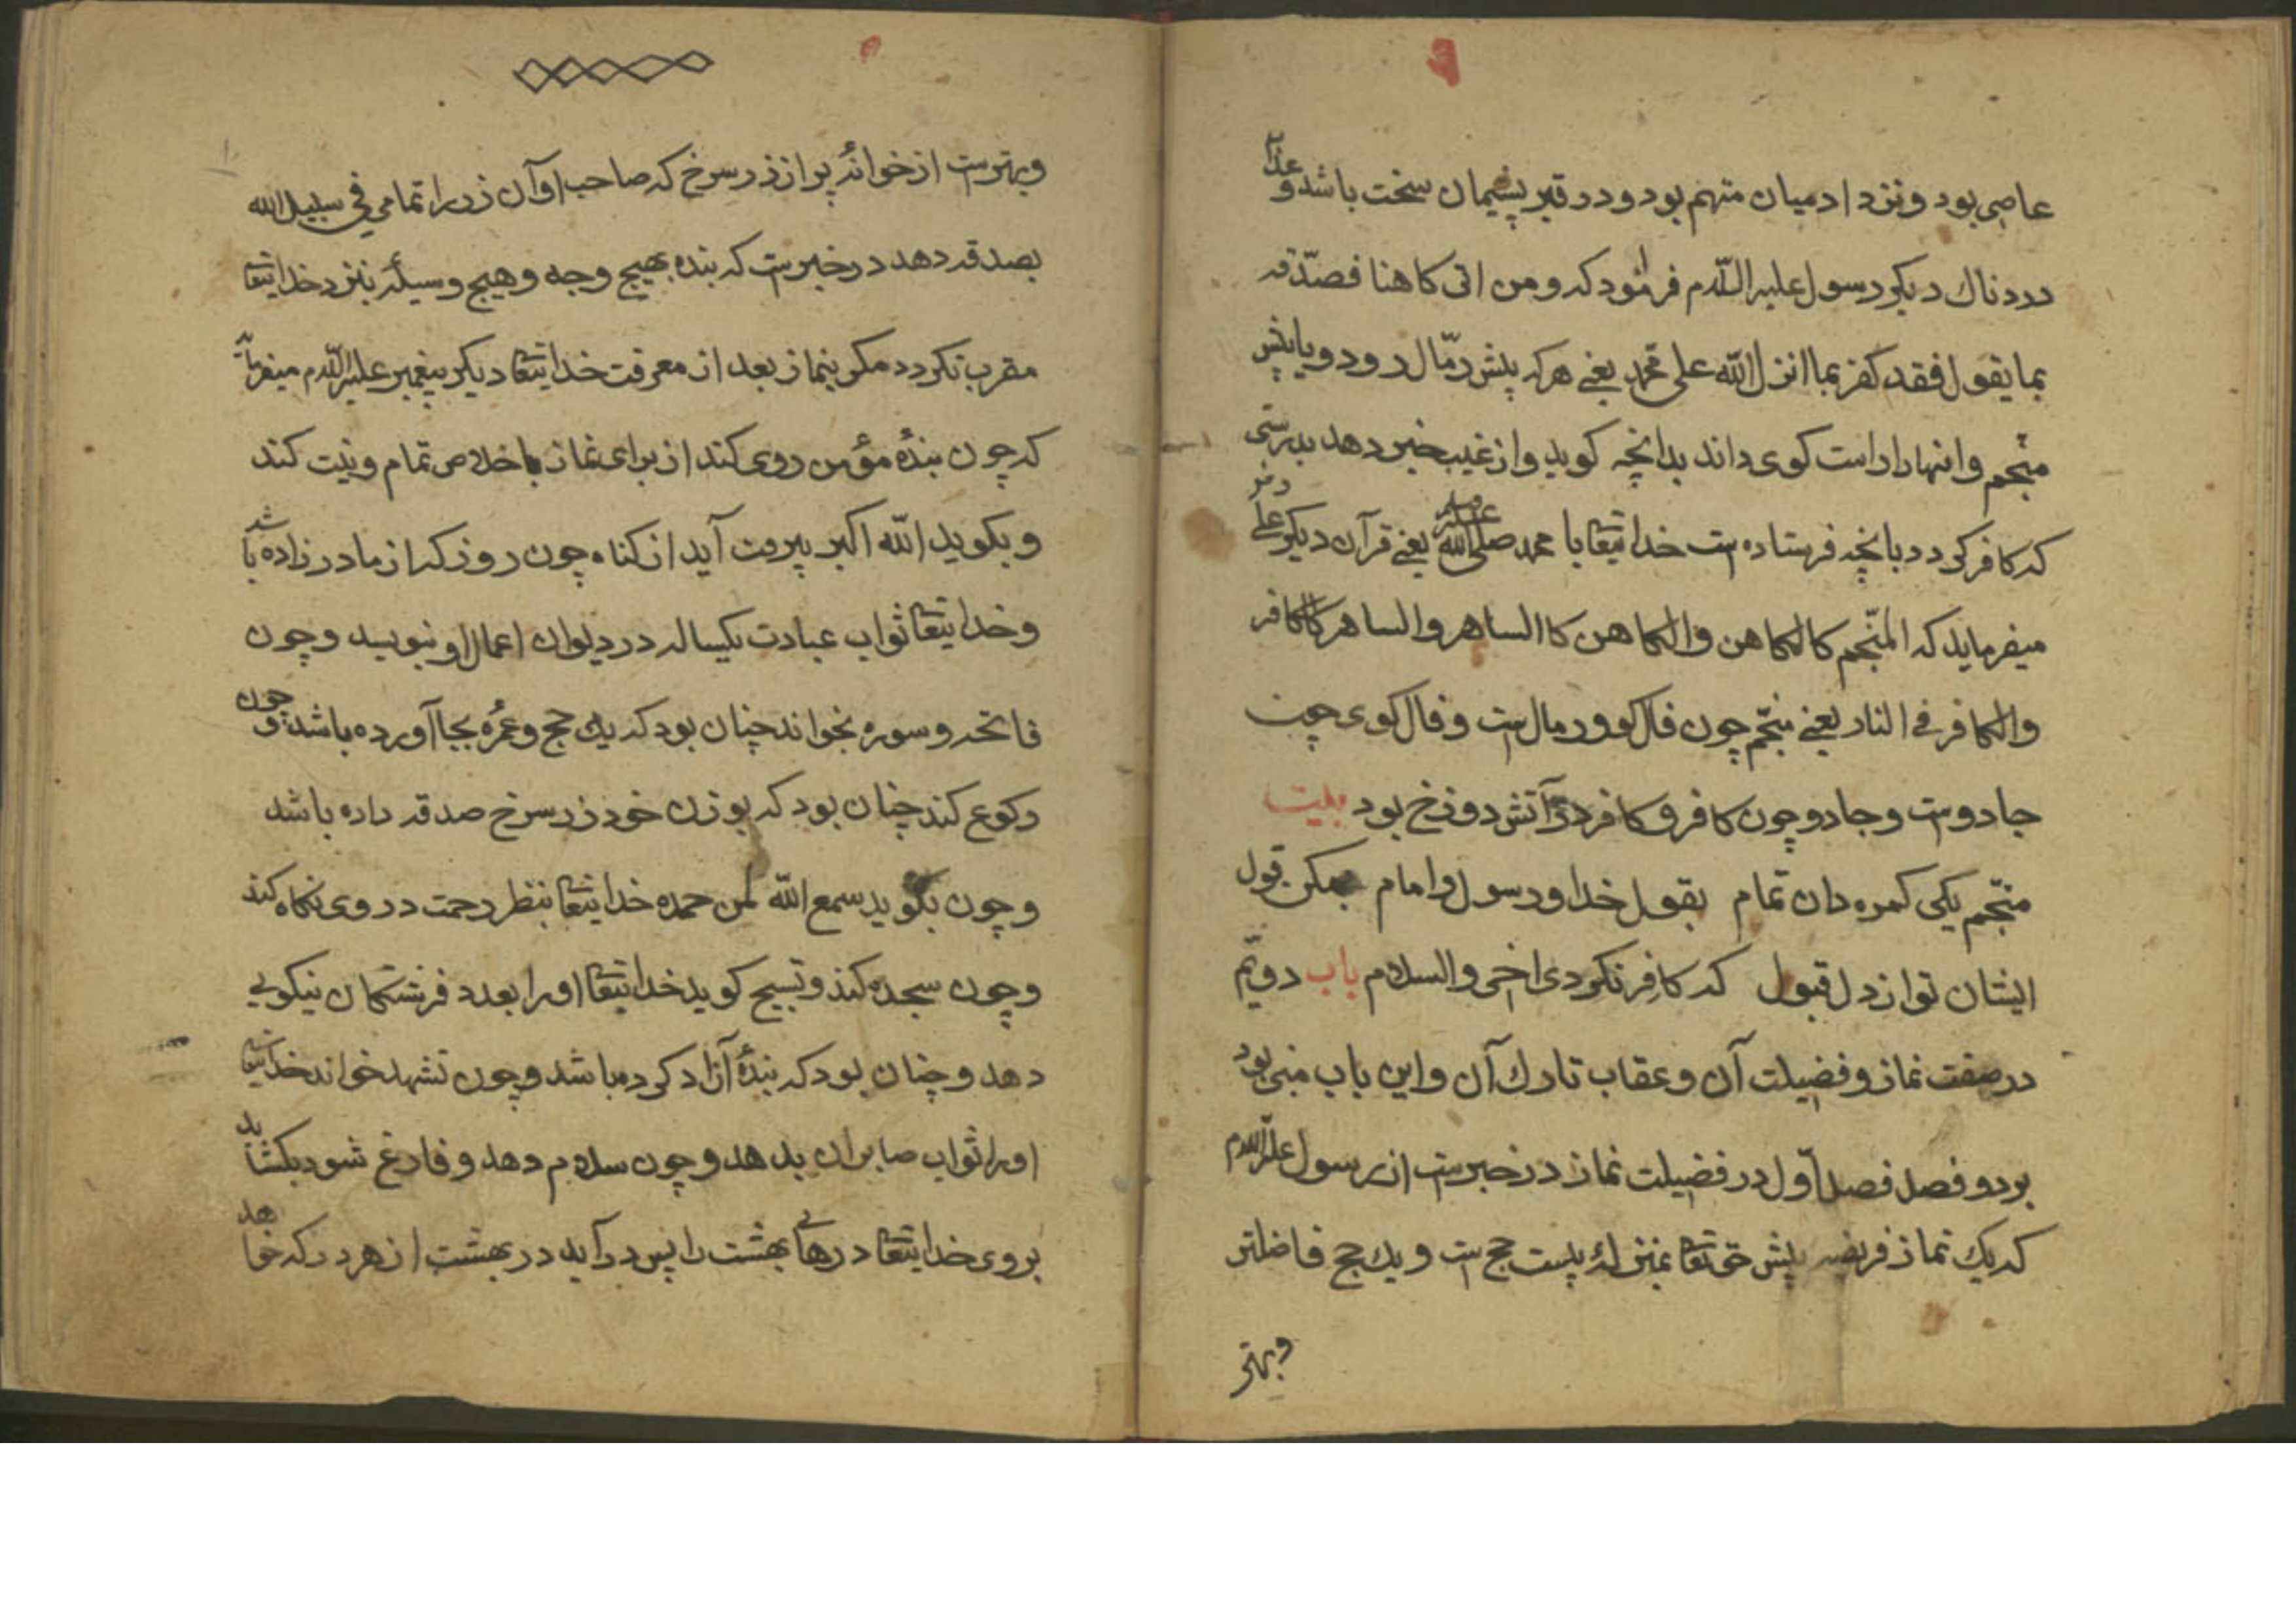 عاصی بود و نزد ادمیان متهم بود و در قبر پشیمان سخت باشد و عذاب
دردناك دیكر رسول علیه السّلام فرمود كه و من اتی كاهنا فصدّقه
بما یقول فقد كفر بما انزل اللّه علی محمد یعنے هركه پیش رمّال رود و یا پیش
منجّم و اینهارا راست كوی داند بدانچه كوید و از غیب خبر دهد بدرستی
كه كافر كردد بانچه فرستاده است خدایتعا با محمد صلی اللّه علیه وسلم یعنے قرآن دیكر علی
میفرماید كه المنجّم كالكاهن و الكاهن كا الساهر و الساهر كا لكافر
و الكافر فے النار یعنے منجّم چون فال كو و رمال است و فال كوی چون
جادوست و جادو چون كافر و كافر در آتش دوزخ بود بلیت
منجّم یكی كمره دان تمام بقول خدا و رسول و امام بمكن قول
ایشان تو از دل قبول كه كافر نكردی اخی والسلام باب دویّم
در صفت نماز و فضیلت آن و عقاب تارك آن و این باب مبنی بود
بر دو فصل فصل اوّل در فضیلت نماز در خبرست از رسول علیه السّلام
كه یك نماز فریضه پیش حق تعا بمنزلهٔ بیست حج است و یك حج فاضلتر
و بهتر
و بهترست از خوانهٔ پر از زر سرخ كه صاحب او آن زر را تمامی فی سبیل الله
بصدقه دهد در خبرست كه بنده بهیچ وجه و هیچ وسیلهٔ بنزد خدایتعا
مقرب نكردد مكر بنماز بعد از معرفت خدایتعا دیكر پیغمبر علیه السّلام میفرماید
كه چون بندهٔ مؤمن روی كند از برای نماز باخلاص تمام و نیّت كند
و بكوید اللّه اكبر بیرون آید از كناه چون روز كه از مادر زاده باشد
و خدایتعا ثواب عبادت یكساله در دیوان اعمال او بنویسد و چون
فاتحه و سوره بخواند چنان بود كه یك حج و عمُره بجا آورده باشد و چون
ركوع كند چنان بود كه بوزن خود زر سرخ صدقه داده باشد
و چون بكوید سمع اللّه لمن حمده خدایتعا بنظر رحمت در وی نكاه كند
و چون سجده كند و تسبیح كوید خدایتعا اورا بعدد فرشتكان نیكویی
دهد و چنان بود كه بندهٔ آزاد كرده باشد و چون تشهد خواند خدایتعا
اورا ثواب صابران بدهد و چون سلام دهد و فارغ شود بكشاید
بروی خدایتعا درهای بهشت را پس در آید در بهشت از هر در كه خواهد